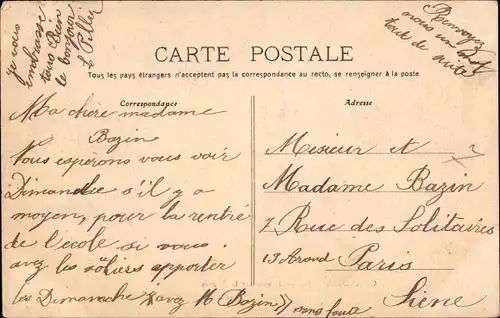 je vous
embrasse
tous bien
le bonjour
Renvoyez
nous un mot
tout de suite
CARTE POSTALE
Tous les pays étrangers n'acceptent pas la correspondance au recto, se renseigner à la poste
Correspondance
Ma chere madame
Bazin
Vous esperons vous voir
Dimanche s'il y a
moyen, pour la rentré
de l'école si vous
avez les souliers apporter
les Dimanche avez M (Bazin) sans faute
Adresse
Mesieur et
Madame Bazin
7 Rue des Solitaires
19 Arond Paris
Siene